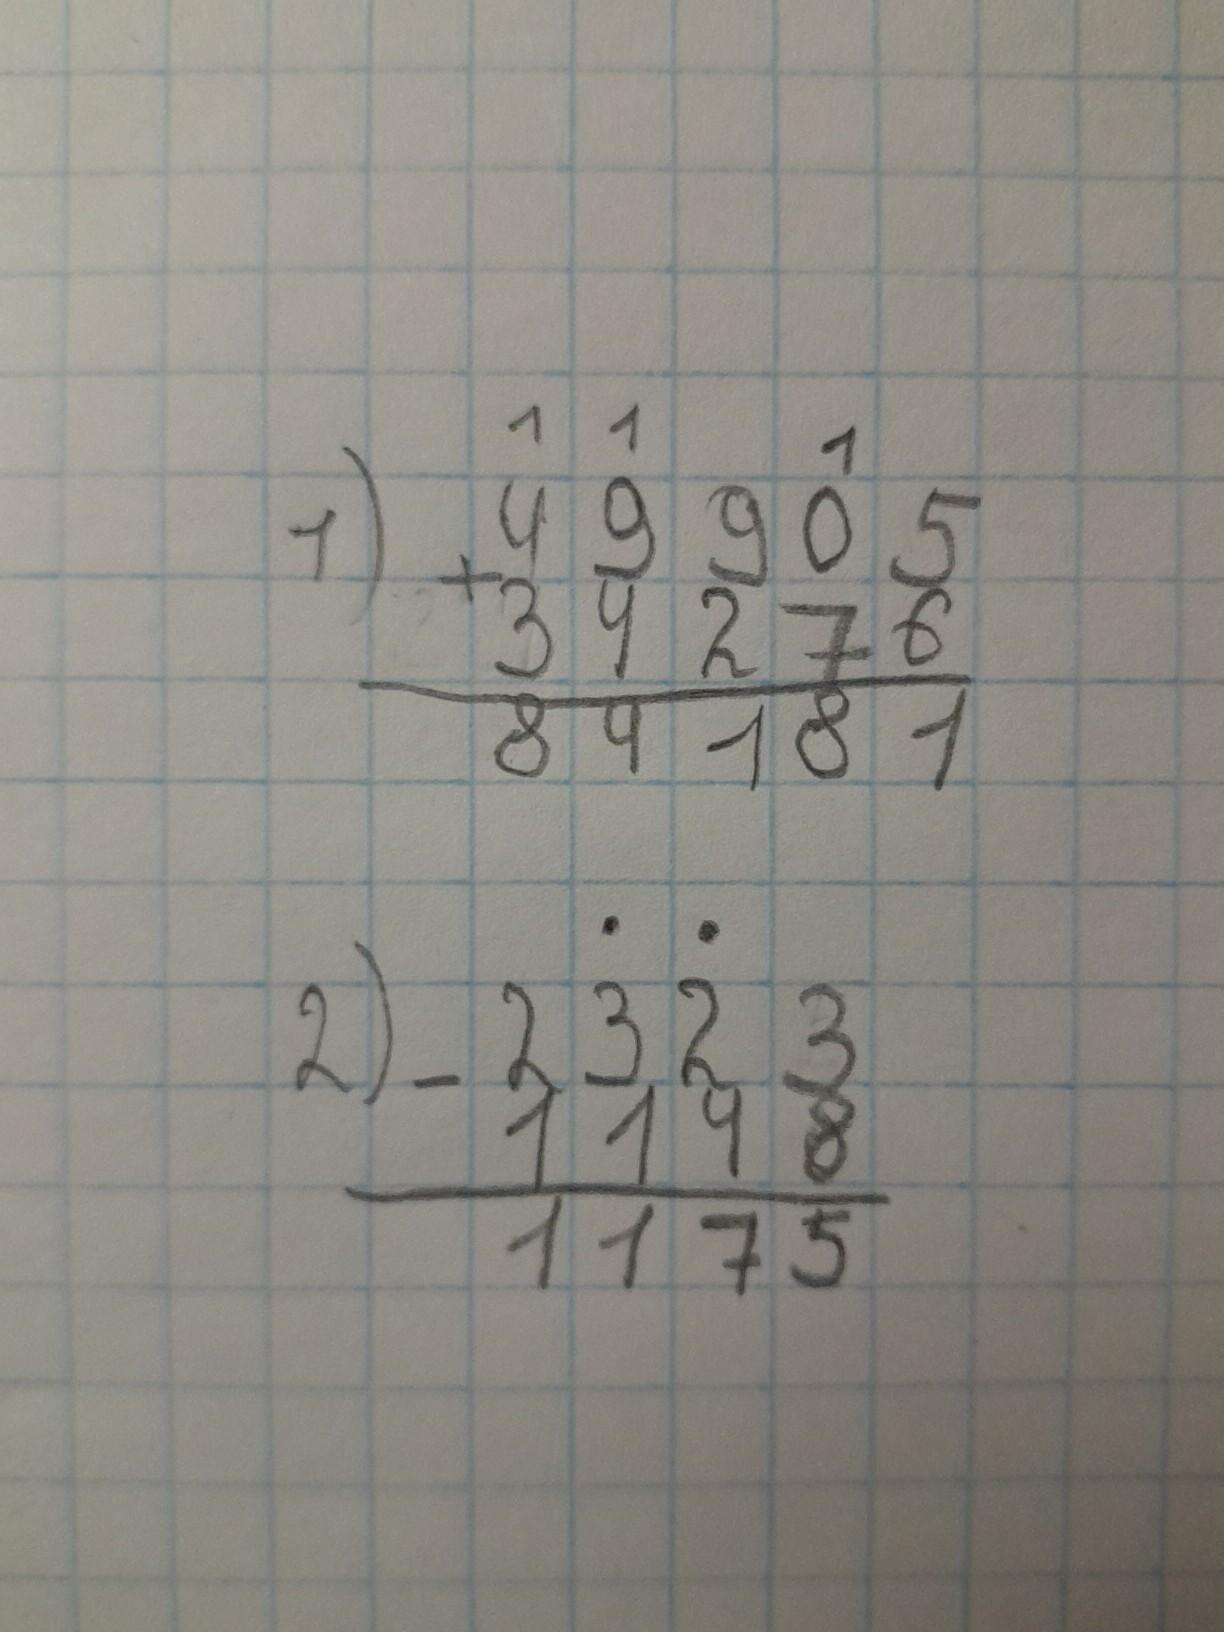 1 1 1
1) 49905
+ 34276
84181
. .
2) - 2323
1148
1175